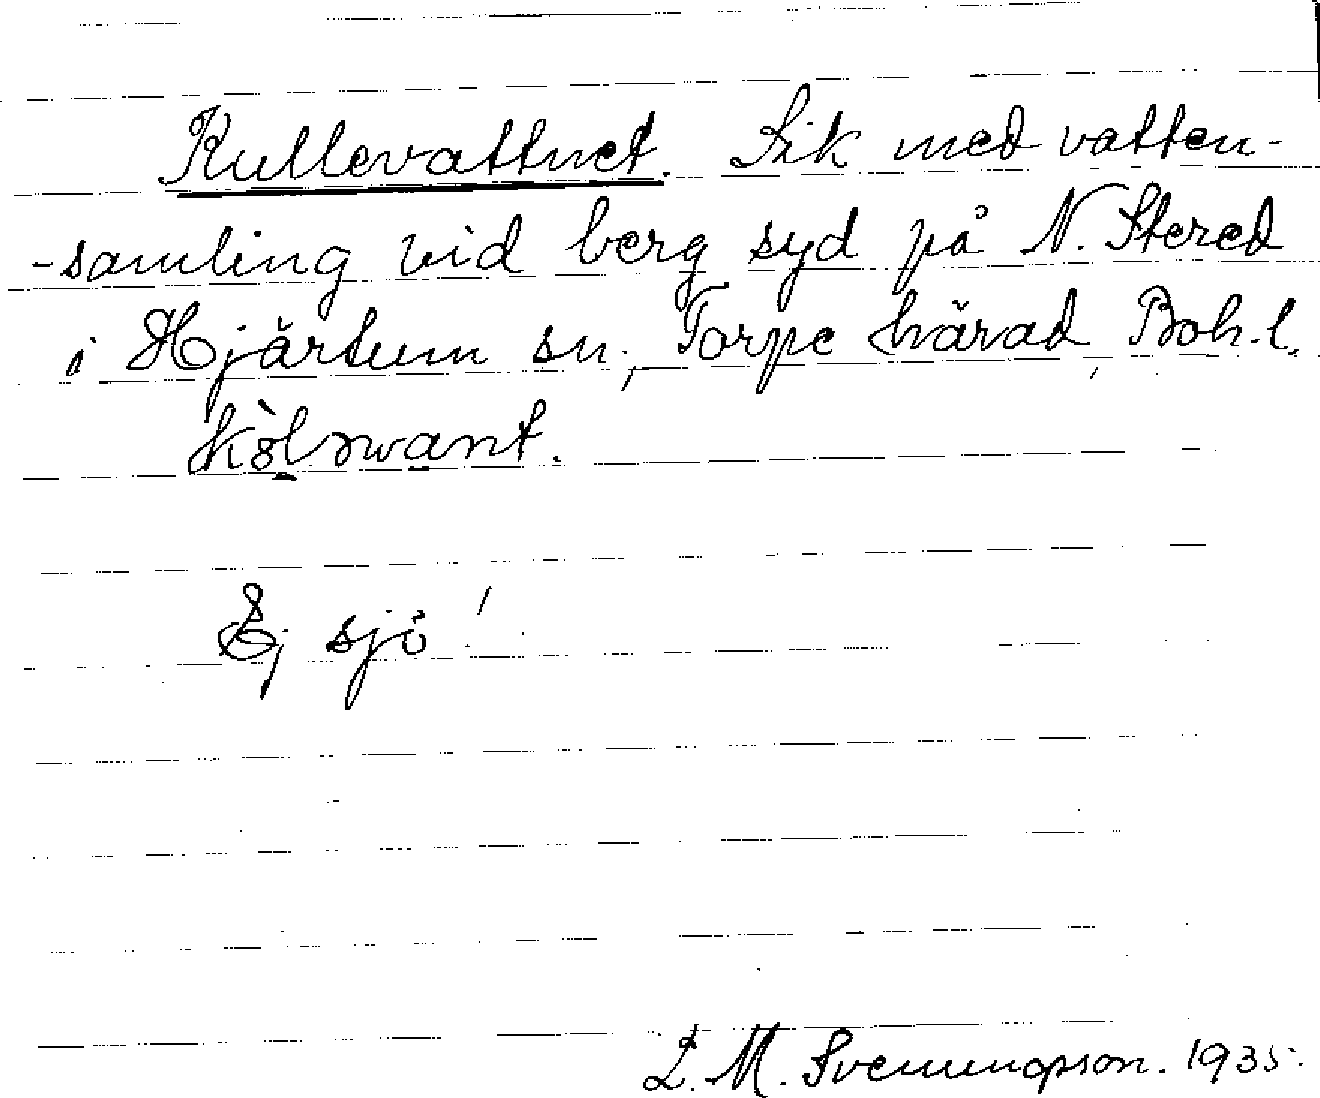 Kullevattnet. Sik med vatten-
-samling vid berg syd på N. Stered
i Hjärtum sn., Torpe härad, Boh.l.
Ej sjö!
L. M. Svenungsson. 1935.